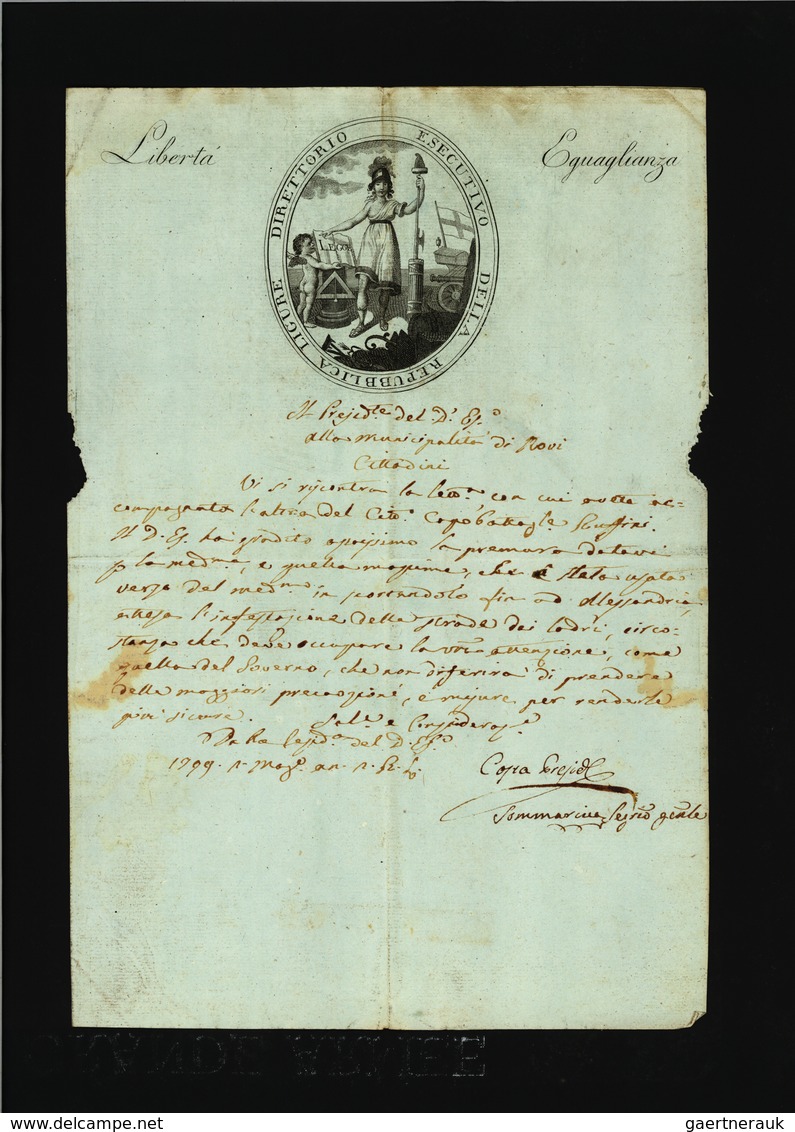 Libertá
Eguaglianza
DIRETTORIO ESECUTIVO DELLA REPUBBLICA LIGURE
LEGGE
Il Presid.te del D.o Es.o
alla Municipalità di Novi
Cittadini
Vi si riscontra la lett.a con cui avete ac=
compagnato l'altra del Citt.o Capobattag.e Ruffini.
Il D. Es. ha gradito la premura datavi
p la med.ma, e quella che è stata usata
verso del med.mo in scortandolo fin ad Alessandria,
attesa l'infestazione delle strade dai ladri, circo=
stanza che deve occupare la vra attenzione, come
quella del Governo, che non diferirà di prendere
delle maggiori precauzioni, e misure per renderle
più sicure. Sal.e e
Dalla del D. Es.o
1799. Mag.o an.
Costa Presid.e
Sommariva Seg.rio gen.le
www.delcampe.net
gaertnerauk